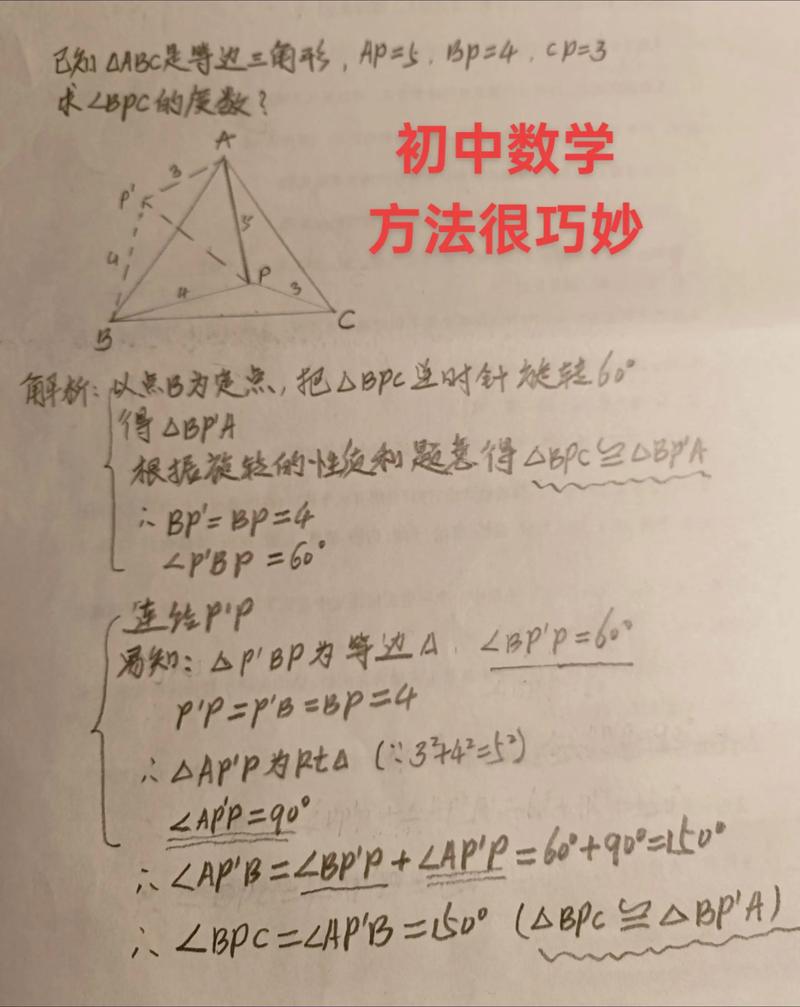 已知△ABC是等边三角形，AP=5，BP=4，CP=3
求∠BPC的度数？
初中数学
方法很巧妙
A
3
P'
5
4
P
4
3
B
C
解析：以点B为定点，把△BPC逆时针旋转60°
得△BP'A
根据旋转的性质和题意得△BPC≌△BP'A
∴BP'=BP=4
∠P'BP=60°
连结P'P
易知：△P'BP为等边△，∠BP'P=60°
P'P=P'B=BP=4
∴△AP'P为Rt△（∵3²+4²=5²）
∠AP'P=90°
∴∠AP'B=∠BP'P+∠AP'P=60°+90°=150°
∴∠BPC=∠AP'B=150°（△BPC≌△BP'A）